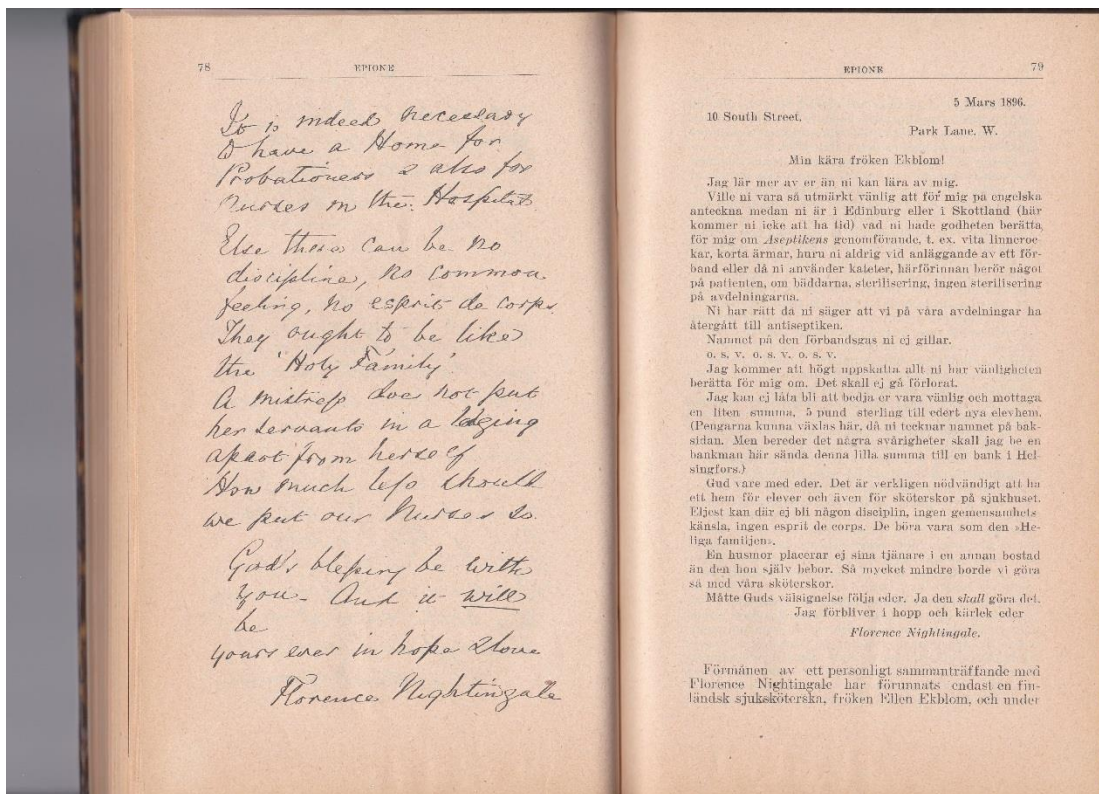 78
EPIONE
It is indeed necessary
to have a Home for
Probationers & also for
Nurses in the Hospital
Else there can be no
discipline, no common
feeling, no esprit de corps.
They ought to be like
the 'Holy Family'.
A mistress does not put
her servants in a lodging
apart from herself
How much less should
we put our Nurses so.
God's blessing be with
you - And it will
be
yours ever in hope & love
Florence Nightingale
EPIONE
79
5 Mars 1896.
10 South Street,
Park Lane. W.
Min kära fröken Ekblom!
Jag lär mer av er än ni kan lära av mig.
Ville ni vara så utmärkt vänlig att för mig på engelska
anteckna medan ni är i Edinburg eller i Skottland (här
kommer ni icke att ha tid) vad ni hade godheten berätta
för mig om Aseptikens genomförande, t. ex. vita linneroc-
kar, korta ärmar, huru ni aldrig vid anläggande av ett för-
band eller då ni använder kateter, härförinnan berör något
på patienten, om bäddarna, sterilisering, ingen sterilisering
på avdelningarna.
Ni har rätt då ni säger att vi på våra avdelningar ha
återgått till antiseptiken.
Namnet på den förbandsgas ni ej gillar.
o. s. v. o. s. v. o. s. v.
Jag kommer att högt uppskatta allt ni har vänligheten
berätta för mig om. Det skall ej gå förlorat.
Jag kan ej låta bli att bedja er vara vänlig och mottaga
en liten summa, 5 pund sterling till edert nya elevhem.
(Pengarna kunna växlas här, då ni tecknar namnet på bak-
sidan. Men bereder det några svårigheter skall jag be en
bankman här sända denna lilla summa till en bank i Hel-
singfors.)
Gud vare med eder. Det är verkligen nödvändigt att ha
ett hem för elever och även för sköterskor på sjukhuset.
Eljest kan där ej bli någon disciplin, ingen gemensamhets-
känsla, ingen esprit de corps. De böra vara som den »He-
liga familjen».
En husmor placerar ej sina tjänare i en annan bostad
än den hon själv bebor. Så mycket mindre borde vi göra
så med våra sköterskor.
Måtte Guds välsignelse följa eder. Ja den skall göra det.
Jag förbliver i hopp och kärlek eder
Florence Nightingale.
Förmånen av ett personligt sammanträffande med
Florence Nightingale har förunnats endast en fin-
ländsk sjuksköterska, fröken Ellen Ekblom, och under